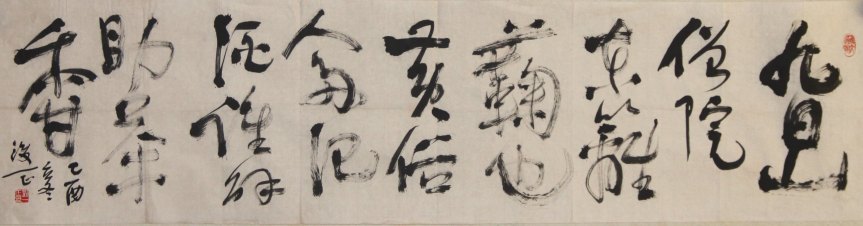 九日山
僧院
東籬
蘜也
黄俗
人多氾
酒誰解
助茶
香
乙酉